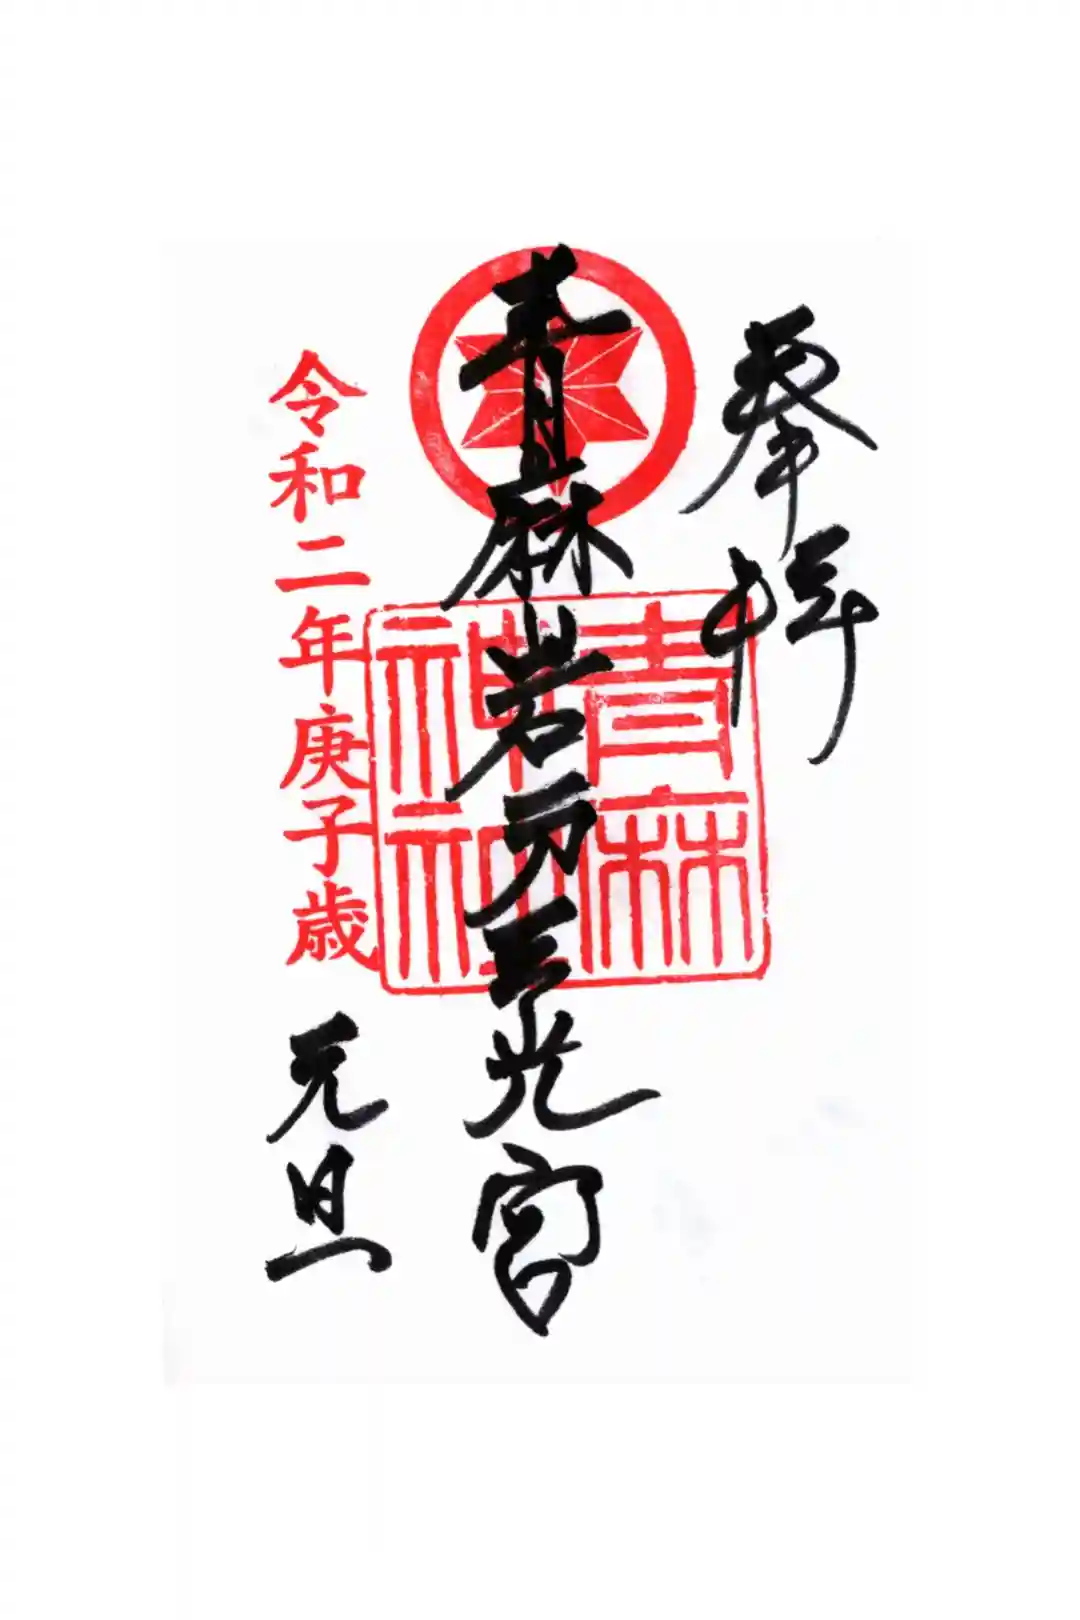 奉拝
青麻岩戸三光宮
青麻
神社
令和二年庚子歳
元旦